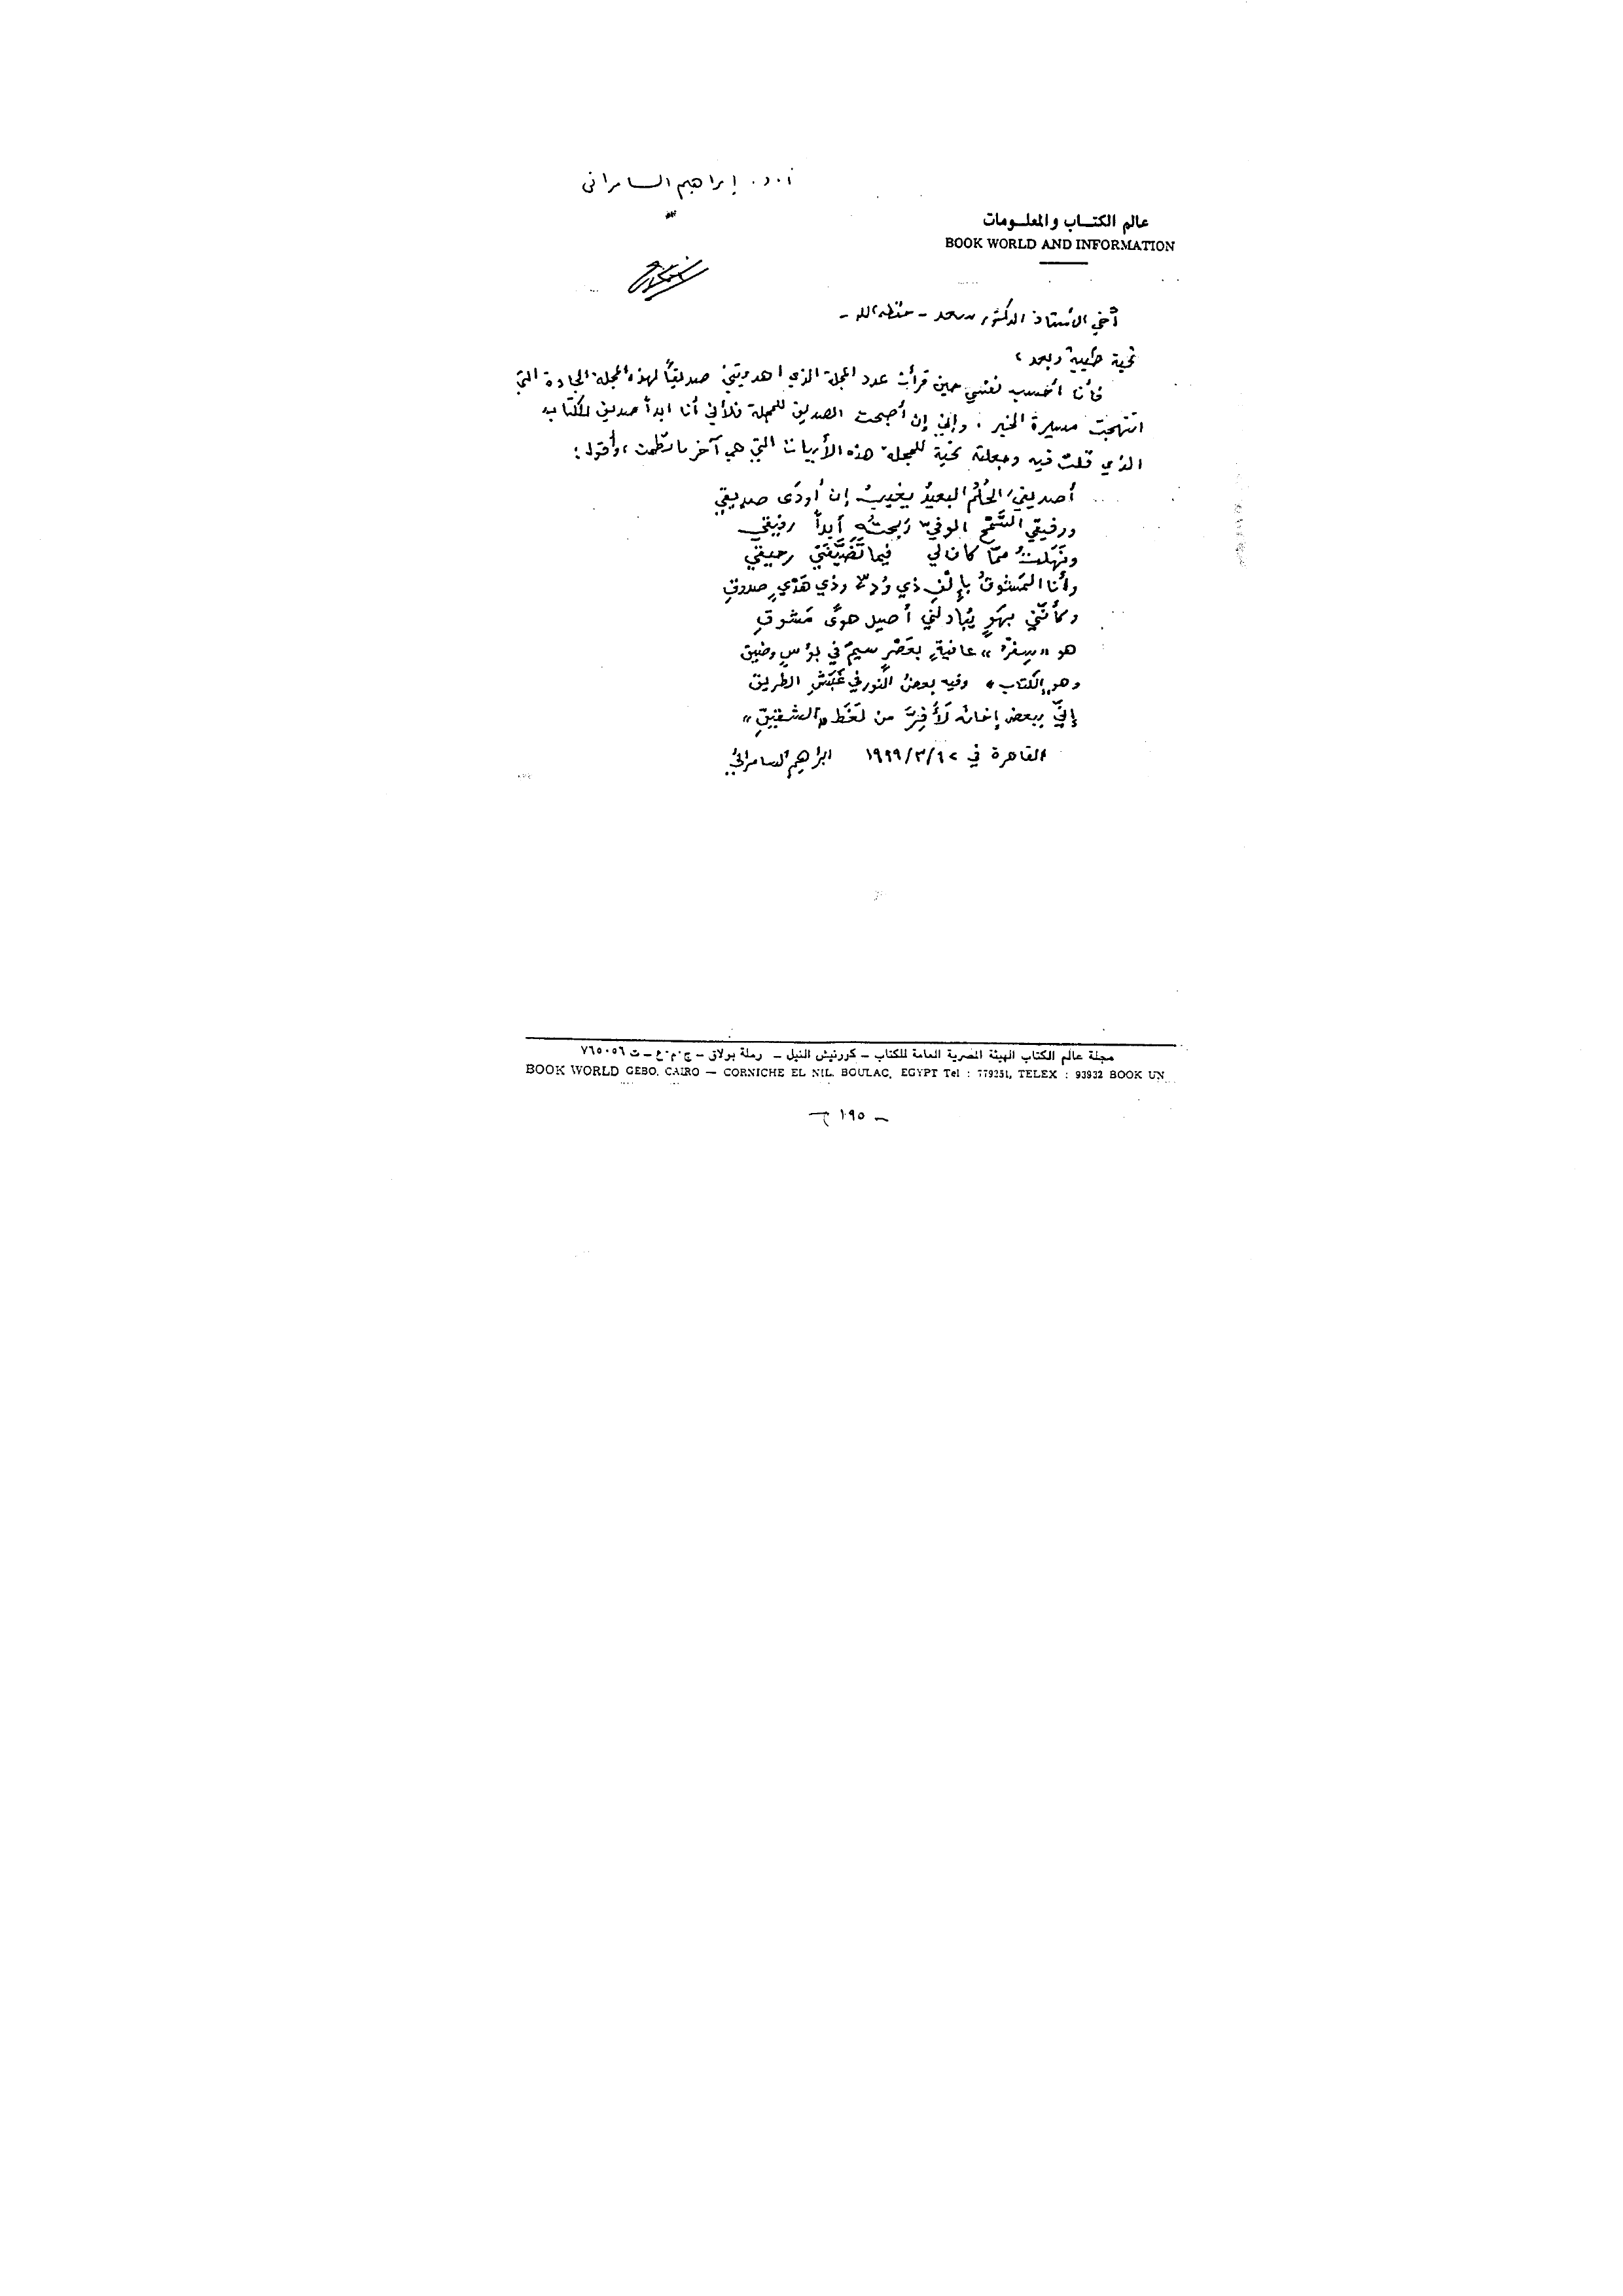 أ.د. إبراهيم السامرائى
عالم الكتـاب والمعلـومات
BOOK WORLD AND INFORMATION
أخي الأستاذ الدكتور سعد - حفظه الله -
تحية طيبة وبعد ،
فأنا أحسب نفسي حين قرأت عدد المجلة الذي أهديتني صديقاً لهذه المجلة الجادة التي
انتهجت مسيرة الخير . وإني إن أصبحت الصديق للمجلة فلأني أنا ابداً صديق الكتاب
الذي قلت فيه وجعلته تحية للمجلة هذه الأبيات التي هي آخر ما نظمت ، وأقول :
أصديقيَ الحُلُمُ البعيدُ يغيبُ إن أودَى صديقي
ورفيقي السَّمْح الوفيّ رَبحتُه أبداً رفيقي
ونَهَلتُ ممّا كان لي فيما تَضَيَّفَني رحيقي
وأنا المَشوقُ بإلْفِ ذي وُدٍّ وذي هَدْيٍ صدوقِ
وكأنّني بهَوٍ يُبادلني أصيل هوًى مَشوقِ
هو «سِفرُ» عافيةٍ بعَصْرٍ سيمَ في بؤسٍ وضيق
وهو «الكتاب» وفيه بعضُ النور في غَبَشِ الطريق
إنّي ببعض إخائه لَأَفِرَّ من لَغَط «الشقيقِ»
القاهرة في /٣/١٩٩٩ ابراهيم السامرائي
مجلة عالم الكتاب الهيئة المصرية العامة للكتاب – كورنيش النيل – رملة بولاق – ج.م.ع – ت ٧٦٥٠٥٦
BOOK WORLD GEBO. CAIRO — CORNICHE EL NIL. BOULAC, EGYPT Tel : 779251, TELEX : 93932 BOOK UN
– ١٩٥ –